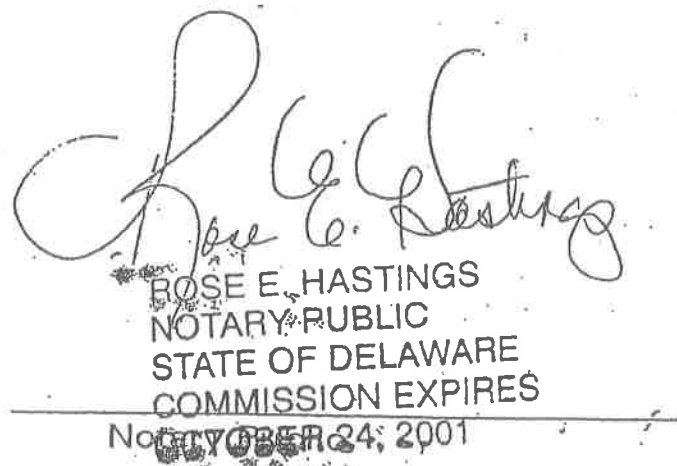 Rose E. Hastings
ROSE E. HASTINGS
NOTARY PUBLIC
STATE OF DELAWARE
COMMISSION EXPIRES
OCTOBER 24, 2001
Notary Public